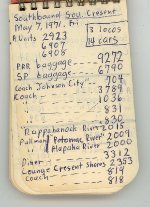 Southbound Sou. Crescent
May 7, 1971. Fri
A Units 2923 3 locos
6907 14 cars
6908
PRR baggage 9272
S.P. baggage 6790
Coach "Johnson City" 704
Coach 3789
" 1036
" 831
" 830
"Rappahanock River" 2015
Pullman "Potomac River" 2009
"Alapaha River" 2000
Diner 3312
Lounge Crescent Shores 2353
Coach 819
" 818